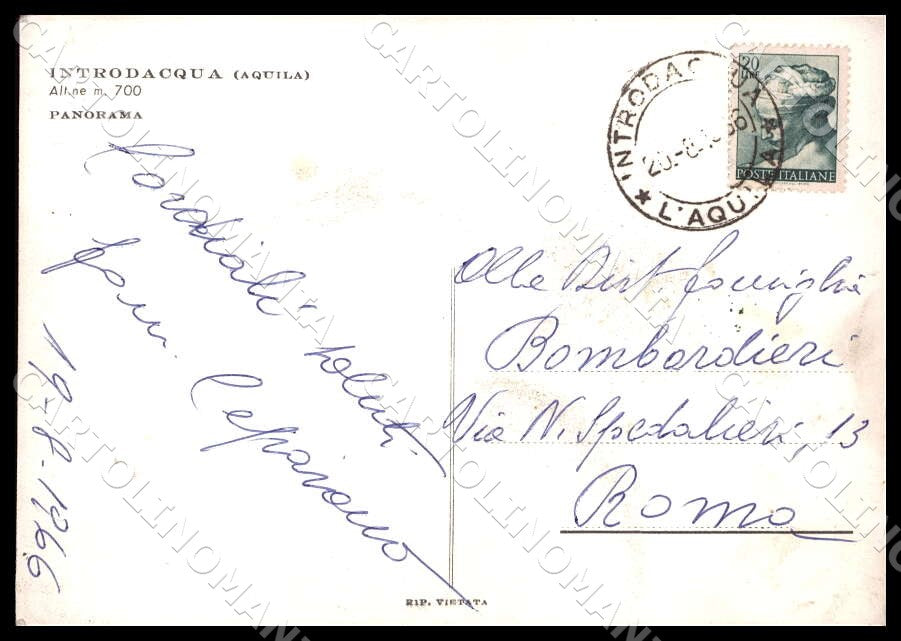 INTRODACQUA (AQUILA)
Alt.ne m. 700
PANORAMA
Cordiali saluti
fam.
19-8-1966
20 LIRE
POSTE ITALIANE
INTRODACQUA
20.-8.
L'AQUILA
Alla Dist. famiglia
Bombardieri
Via N. Spedalieri, 13
Roma
RIP. VIETATA
CARTOLINOMANIA